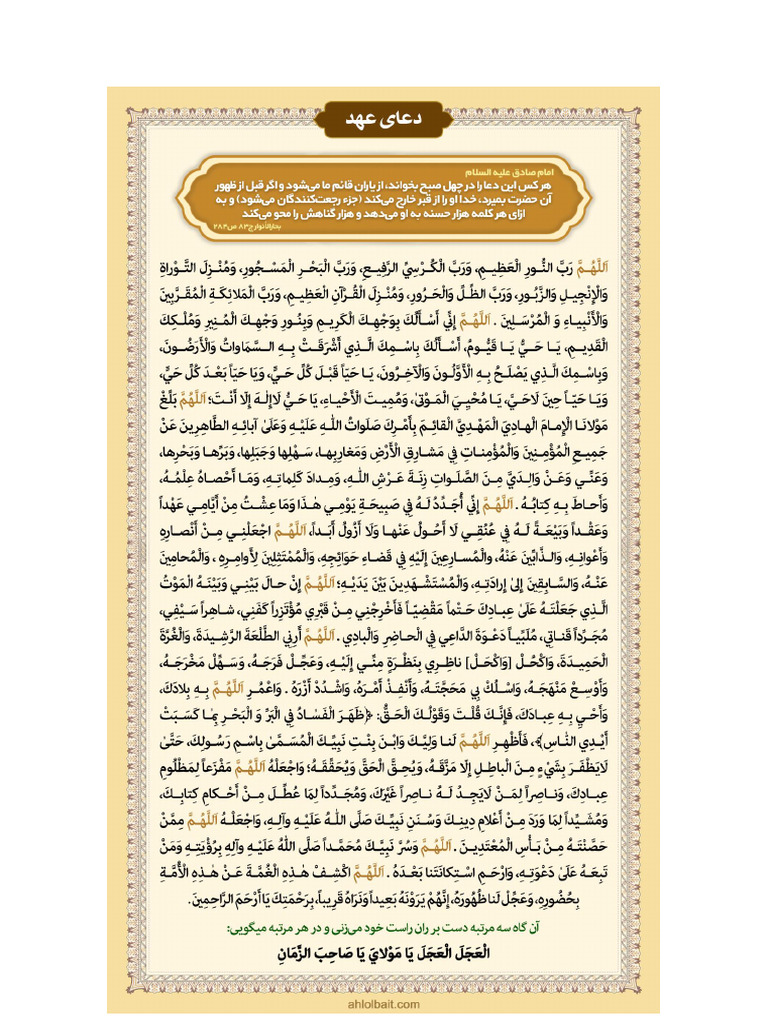 دعای عهد
امام صادق علیه السلام
هر کس این دعا را در چهل صبح بخواند، از یاران قائم ما می‌شود و اگر قبل از ظهور
آن حضرت بمیرد، خدا او را از قبر خارج می‌کند (جزء رجعت‌کنندگان می‌شود) و به
ازای هر کلمه هزار حسنه به او می‌دهد و هزار گناهش را محو می‌کند
بحارالانوار ج۸۳ ص۲۸۴
اَللَّهُمَّ رَبَّ النُّورِ الْعَظِيمِ، وَرَبَّ الْكُرْسِيِّ الرَّفِيعِ، وَرَبَّ الْبَحْرِ الْمَسْجُورِ، وَمُنْزِلَ التَّوْراةِ
وَالْإِنْجِيلِ وَالزَّبُورِ، وَرَبَّ الظِّلِّ وَالْحَرُورِ، وَمُنْزِلَ الْقُرْآنِ الْعَظِيمِ، وَرَبَّ الْمَلائِكَةِ الْمُقَرَّبِينَ
وَالْأَنْبِياءِ وَ الْمُرْسَلِينَ . اَللَّهُمَّ إِنِّي أَسْأَلُكَ بِوَجْهِكَ الْكَرِيمِ وَبِنُورِ وَجْهِكَ الْمُنِيرِ وَمُلْكِكَ
الْقَدِيمِ، يَا حَيُّ يَا قَيُّومُ، أَسْأَلُكَ بِاسْمِكَ الَّذِي أَشْرَقَتْ بِهِ السَّمَاوَاتُ وَالْأَرَضُونَ،
وَبِاسْمِكَ الَّذِي يَصْلَحُ بِهِ الْأَوَّلُونَ وَالْآخِرُونَ، يَا حَيّاً قَبْلَ كُلِّ حَيٍّ، وَيَا حَيّاً بَعْدَ كُلِّ حَيٍّ،
وَيَا حَيّاً حِينَ لَاحَيَّ، يَا مُحْيِيَ الْمَوْتىٰ، وَمُمِيتَ الْأَحْياءِ، يَا حَيُّ لَاإِلٰهَ إِلّا أَنْتَ؛ اَللَّهُمَّ بَلِّغْ
مَوْلانَا الْإِمامَ الْهادِيَ الْمَهْدِيَّ الْقائِمَ بِأَمْرِكَ صَلَواتُ اللّٰهِ عَلَيْهِ وَعَلىٰ آبائِهِ الطَّاهِرِينَ عَنْ
جَمِيعِ الْمُؤْمِنِينَ وَالْمُؤْمِناتِ فِي مَشارِقِ الْأَرْضِ وَمَغارِبِها، سَهْلِها وَجَبَلِها، وَبَرِّها وَبَحْرِها،
وَعَنِّي وَعَنْ وَالِدَيَّ مِنَ الصَّلَواتِ زِنَةَ عَرْشِ اللّٰهِ، وَمِدادَ كَلِماتِهِ، وَمَا أَحْصاهُ عِلْمُهُ،
وَأَحاطَ بِهِ كِتابُهُ . اَللَّهُمَّ إِنِّي أُجَدِّدُ لَهُ فِي صَبِيحَةِ يَوْمِي هٰذَا وَمَا عِشْتُ مِنْ أَيَّامِي عَهْداً
وَعَقْداً وَبَيْعَةً لَهُ فِي عُنُقِي لَا أَحُولُ عَنْها وَلَا أَزُولُ أَبَداً، اَللَّهُمَّ اجْعَلْنِي مِنْ أَنْصارِهِ
وَأَعْوانِهِ، وَالذَّابِّينَ عَنْهُ، والْمُسارِعِينَ إِلَيْهِ فِي قَضاءِ حَوائِجِهِ، وَالْمُمْتَثِلِينَ لِأَوامِرِهِ ، وَالْمُحامِينَ
عَنْهُ، وَالسَّابِقِينَ إِلىٰ إِرادَتِهِ، وَالْمُسْتَشْهَدِينَ بَيْنَ يَدَيْهِ؛ اَللَّهُمَّ إِنْ حالَ بَيْنِي وَبَيْنَهُ الْمَوْتُ
الَّذِي جَعَلْتَهُ عَلىٰ عِبادِكَ حَتْماً مَقْضِيّاً فَأَخْرِجْنِي مِنْ قَبْرِي مُؤْتَزِراً كَفَنِي، شاهِراً سَيْفِي،
مُجَرِّداً قَناتِي، مُلَبِّياً دَعْوَةَ الدَّاعِي فِي الْحاضِرِ وَالْبادِي . اَللَّهُمَّ أَرِنِي الطَّلْعَةَ الرَّشِيدَةَ، وَالْغُرَّةَ
الْحَمِيدَةَ، وَاكْحُلْ [وَاكْحَلْ] ناظِرِي بِنَظْرَةٍ مِنِّي إِلَيْهِ، وَعَجِّلْ فَرَجَهُ، وَسَهِّلْ مَخْرَجَهُ،
وَأَوْسِعْ مَنْهَجَهُ، وَاسْلُكْ بِي مَحَجَّتَهُ، وَأَنْفِذْ أَمْرَهُ، وَاشْدُدْ أَزْرَهُ . وَاعْمُرِ اَللَّهُمَّ بِهِ بِلادَكَ،
وَأَحْيِ بِهِ عِبادَكَ، فَإِنَّكَ قُلْتَ وَقَوْلُكَ الْحَقُّ: ﴿ظَهَرَ الْفَسَادُ فِي الْبَرِّ وَ الْبَحْرِ بِمَا كَسَبَتْ
أَيْدِي النَّاسِ﴾، فَأَظْهِرِ اَللَّهُمَّ لَنا وَلِيَّكَ وَابْنَ بِنْتِ نَبِيِّكَ الْمُسَمَّىٰ بِاسْمِ رَسُولِكَ، حَتَّىٰ
لَايَظْفَرَ بِشَيْءٍ مِنَ الْباطِلِ إِلّا مَزَّقَهُ، وَيُحِقَّ الْحَقَّ وَيُحَقِّقَهُ؛ وَاجْعَلْهُ اَللَّهُمَّ مَفْزَعاً لِمَظْلُومِ
عِبادِكَ، وَناصِراً لِمَنْ لَايَجِدُ لَهُ ناصِراً غَيْرَكَ، وَمُجَدِّداً لِمَا عُطِّلَ مِنْ أَحْكامِ كِتابِكَ،
وَمُشَيِّداً لِمَا وَرَدَ مِنْ أَعْلامِ دِينِكَ وَسُنَنِ نَبِيِّكَ صَلَّى اللّٰهُ عَلَيْهِ وَآلِهِ، وَاجْعَلْهُ اَللَّهُمَّ مِمَّنْ
حَصَّنْتَهُ مِنْ بَأْسِ الْمُعْتَدِينَ . اَللَّهُمَّ وَسُرَّ نَبِيَّكَ مُحَمَّداً صَلَّى اللّٰهُ عَلَيْهِ وَآلِهِ بِرُؤْيَتِهِ وَمَنْ
تَبِعَهُ عَلىٰ دَعْوَتِهِ، وَارْحَمِ اسْتِكانَتَنا بَعْدَهُ . اَللَّهُمَّ اكْشِفْ هٰذِهِ الْغُمَّةَ عَنْ هٰذِهِ الْأُمَّةِ
بِحُضُورِهِ، وَعَجِّلْ لَنا ظُهُورَهُ، إِنَّهُمْ يَرَوْنَهُ بَعِيداً وَنَرَاهُ قَرِيباً، بِرَحْمَتِكَ يَا أَرْحَمَ الرَّاحِمِينَ.
آن گاه سه مرتبه دست بر ران راست خود می‌زنی و در هر مرتبه میگویی:
الْعَجَلَ الْعَجَلَ يَا مَوْلايَ يَا صَاحِبَ الزَّمانِ
ahlolbait.com